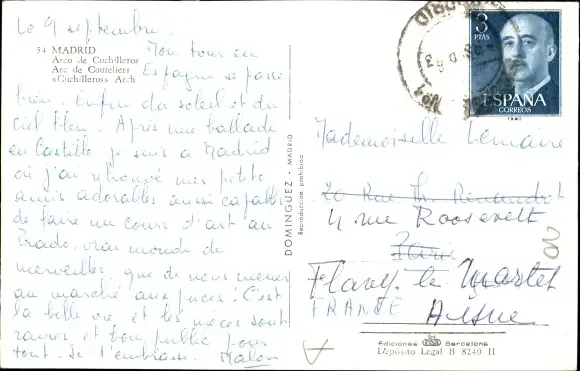 Le 9 septembre.
54 MADRID
Arco de Cuchilleros
Arc de Couteliers
«Cuchilleros» Arch
Mon tour en
Espagne se passe
bien. Enfin du soleil et du
ciel bleu. Après une ballade
en Castille je suis à Madrid
où j'ai retrouvé mes petits
amis adorables aussi capables
de faire un cours d'art au
Prado, vrai monde de
merveilles, que de nous mener
au marché aux puces! C'est
la belle vie et les
rares et bon public pour
tout. Je t'embrasse.
DOMINGUEZ - MADRID
Reproducción prohibida
3
PTAS
ESPAÑA
CORREOS
MADRID
Mademoiselle Lemaire
20 Rue Th. Renaudot
4 rue Roosevelt
Paris
Flavy-le Martel
FRANCE Aisne
Ediciones Barcelona
Depósito Legal B 8240 II